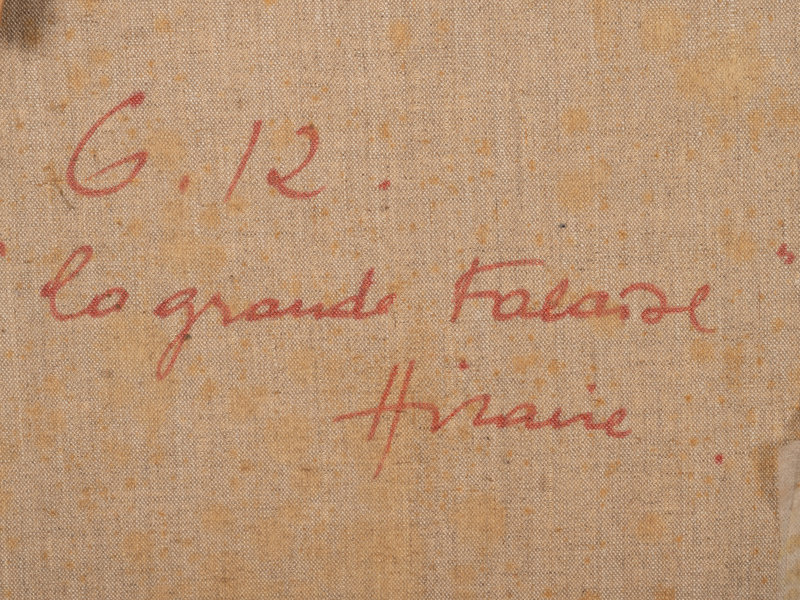 G. 12.
"la grande Falaise"
Hilaire.